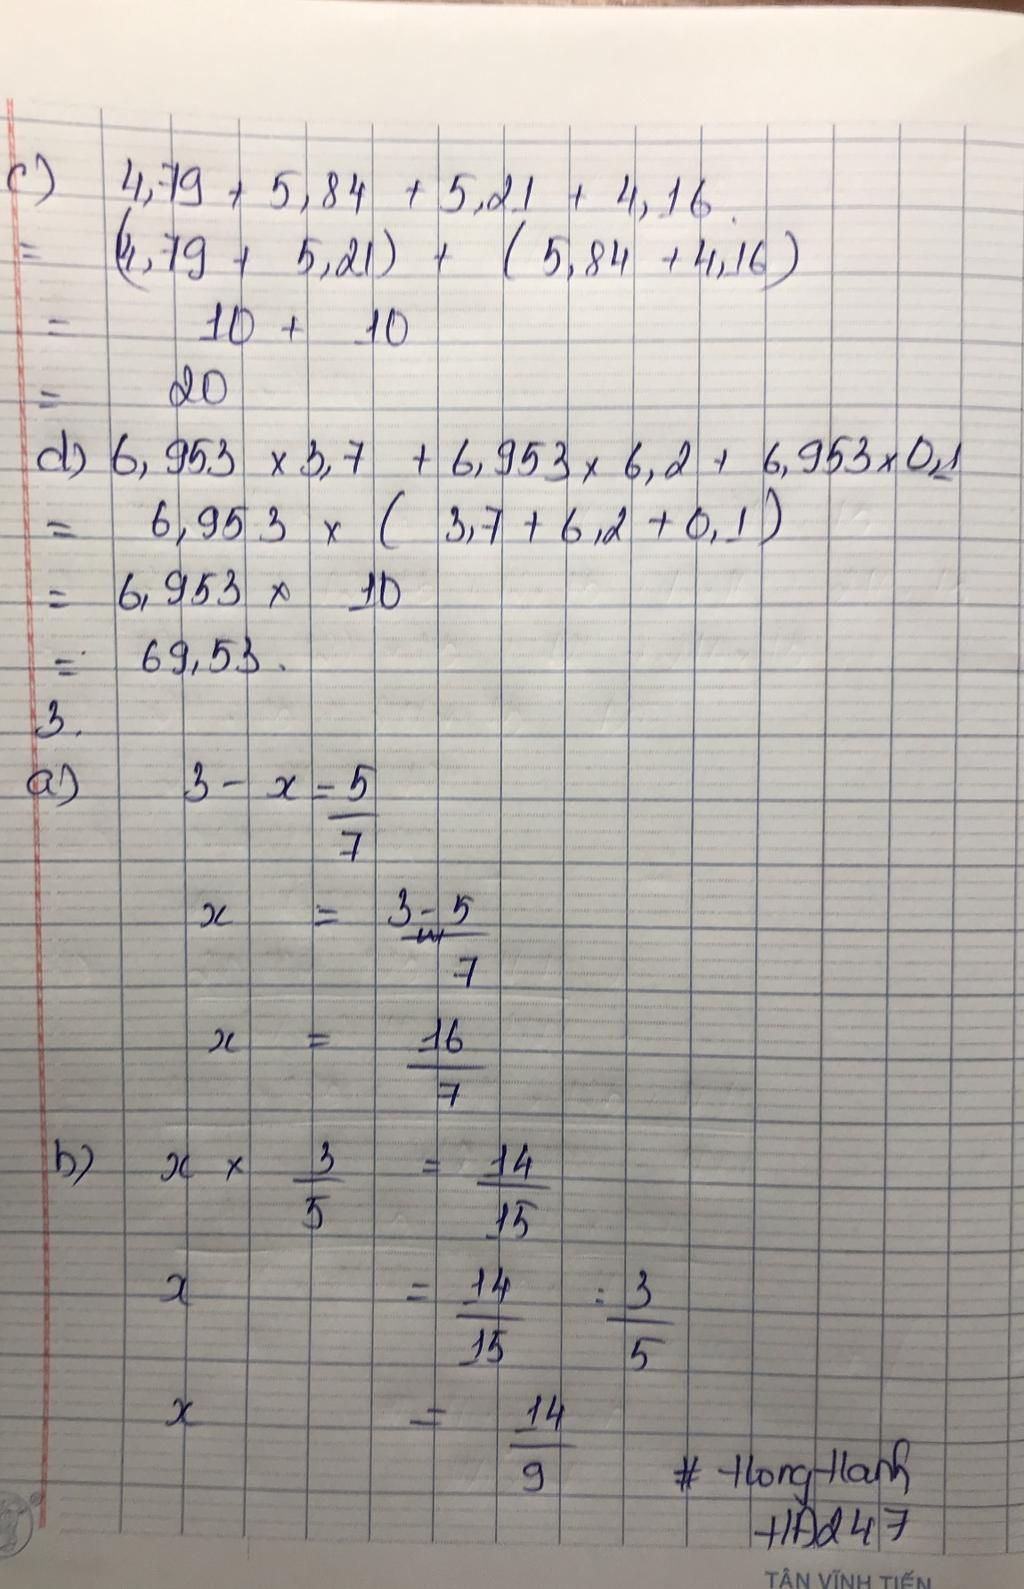 c) 4,79 + 5,84 + 5,21 + 4,16
= (4,79 + 5,21) + (5,84 + 4,16)
= 10 + 10
= 20
d) 6,953 x 3,7 + 6,953 x 6,2 + 6,953 x 0,1
= 6,953 x (3,7 + 6,2 + 0,1)
= 6,953 x 10
= 69,53.
3.
a) 3 - x = 5/7
x = 3 - 5/7
x = 16/7
b) x x 3/5 = 14/15
x = 14/15 : 3/5
x = 14/9
# HongHanh
HĐ247
TÂN VĨNH TIẾN